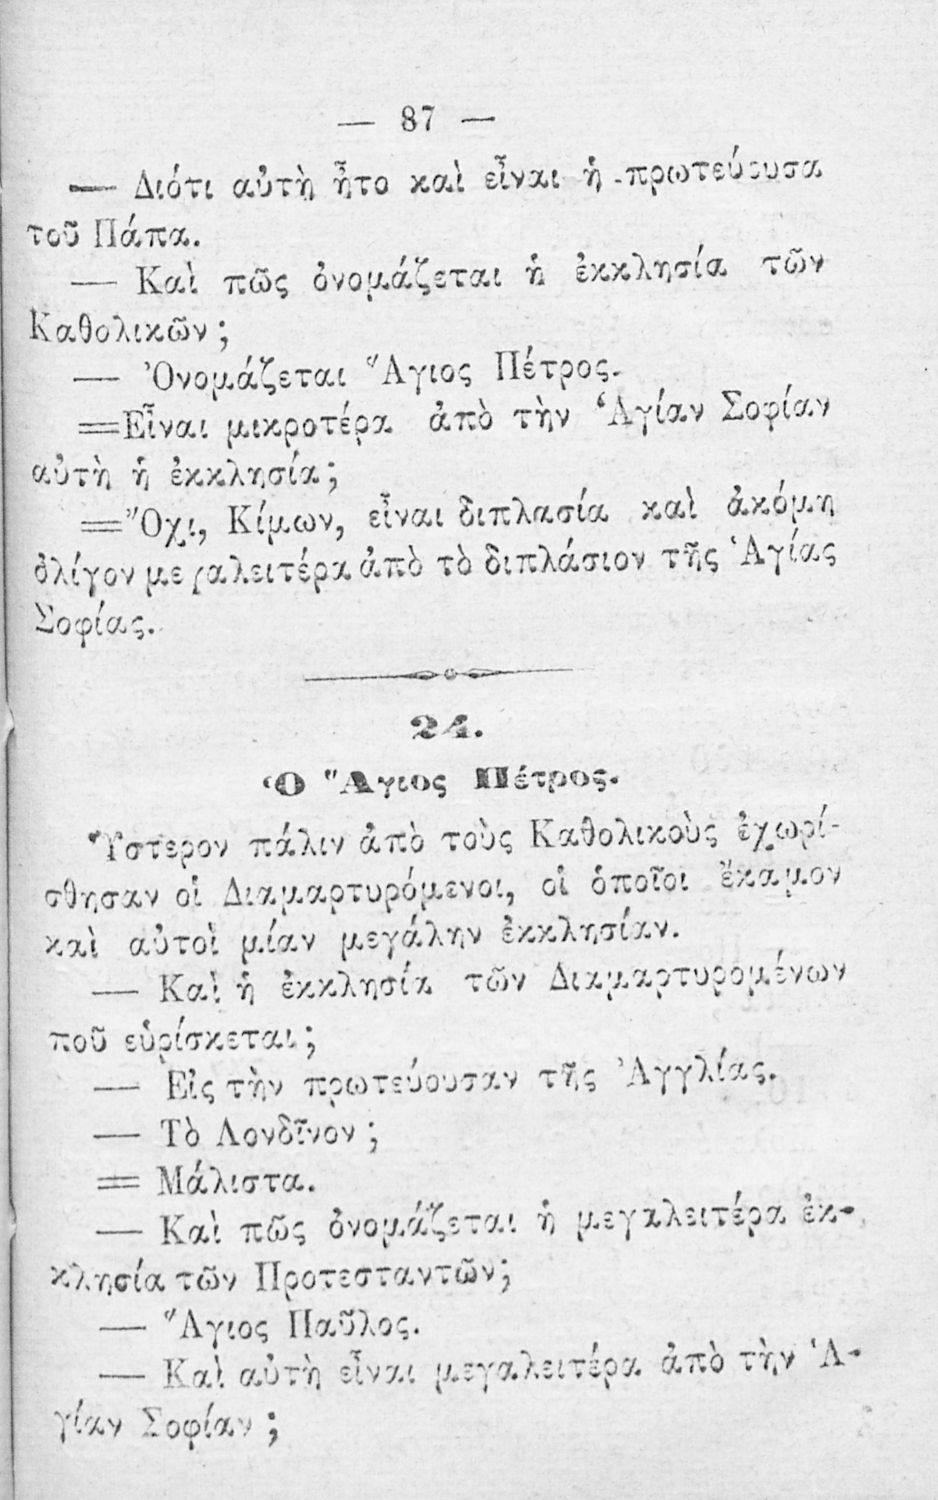 — 87 —
— Διότι αὐτὴ ἦτο καὶ εἶναι ἡ πρωτεύουσα
τοῦ Πάπα.
— Καὶ πῶς ὀνομάζεται ἡ ἐκκλησία τῶν
Καθολικῶν ;
— Ὀνομάζεται Ἅγιος Πέτρος.
=Εἶναι μικροτέρα ἀπὸ τὴν Ἁγίαν Σοφίαν
αὐτὴ ἡ ἐκκλησία;
=Ὄχι, Κίμων, εἶναι διπλασία καὶ ἀκόμη
ὀλίγον μεγαλειτέρα ἀπὸ τὸ διπλάσιον τῆς Ἁγίας
Σοφίας.
24.
Ὁ Ἅγιος Πέτρος.
Ὕστερον πάλιν ἀπὸ τοὺς Καθολικοὺς ἐχωρί-
σθησαν οἱ Διαμαρτυρόμενοι, οἱ ὁποῖοι ἔκαμον
καὶ αὐτοὶ μίαν μεγάλην ἐκκλησίαν.
— Καὶ ἡ ἐκκλησία τῶν Διαμαρτυρομένων
ποῦ εὑρίσκεται ;
— Εἰς τὴν πρωτεύουσαν τῆς Ἀγγλίας.
— Τὸ Λονδῖνον ;
= Μάλιστα.
— Καὶ πῶς ὀνομάζεται ἡ μεγαλειτέρα ἐκ-
κλησία τῶν Προτεσταντῶν;
— Ἅγιος Παῦλος.
— Καὶ αὐτὴ εἶναι μεγαλειτέρα ἀπὸ τὴν Ἁ-
γίαν Σοφίαν ;